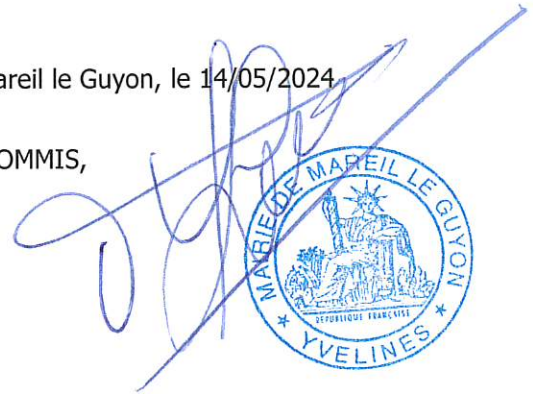 areil le Guyon, le 14/05/2024
OMMIS,
MAIRIE DE MAREIL LE GUYON
RÉPUBLIQUE FRANÇAISE
* YVELINES *